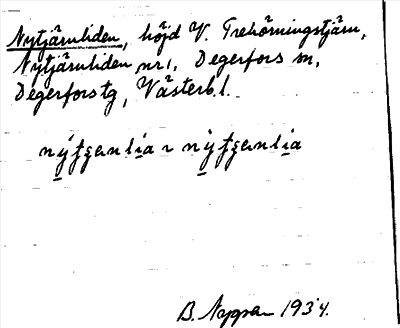 Nytjärnliden, höjd V. Trehörningstjärn,
Nytjärnliden nr 1, Degerfors sn,
Degerfors tg, Västerb. l.
B. Nygren 1934.